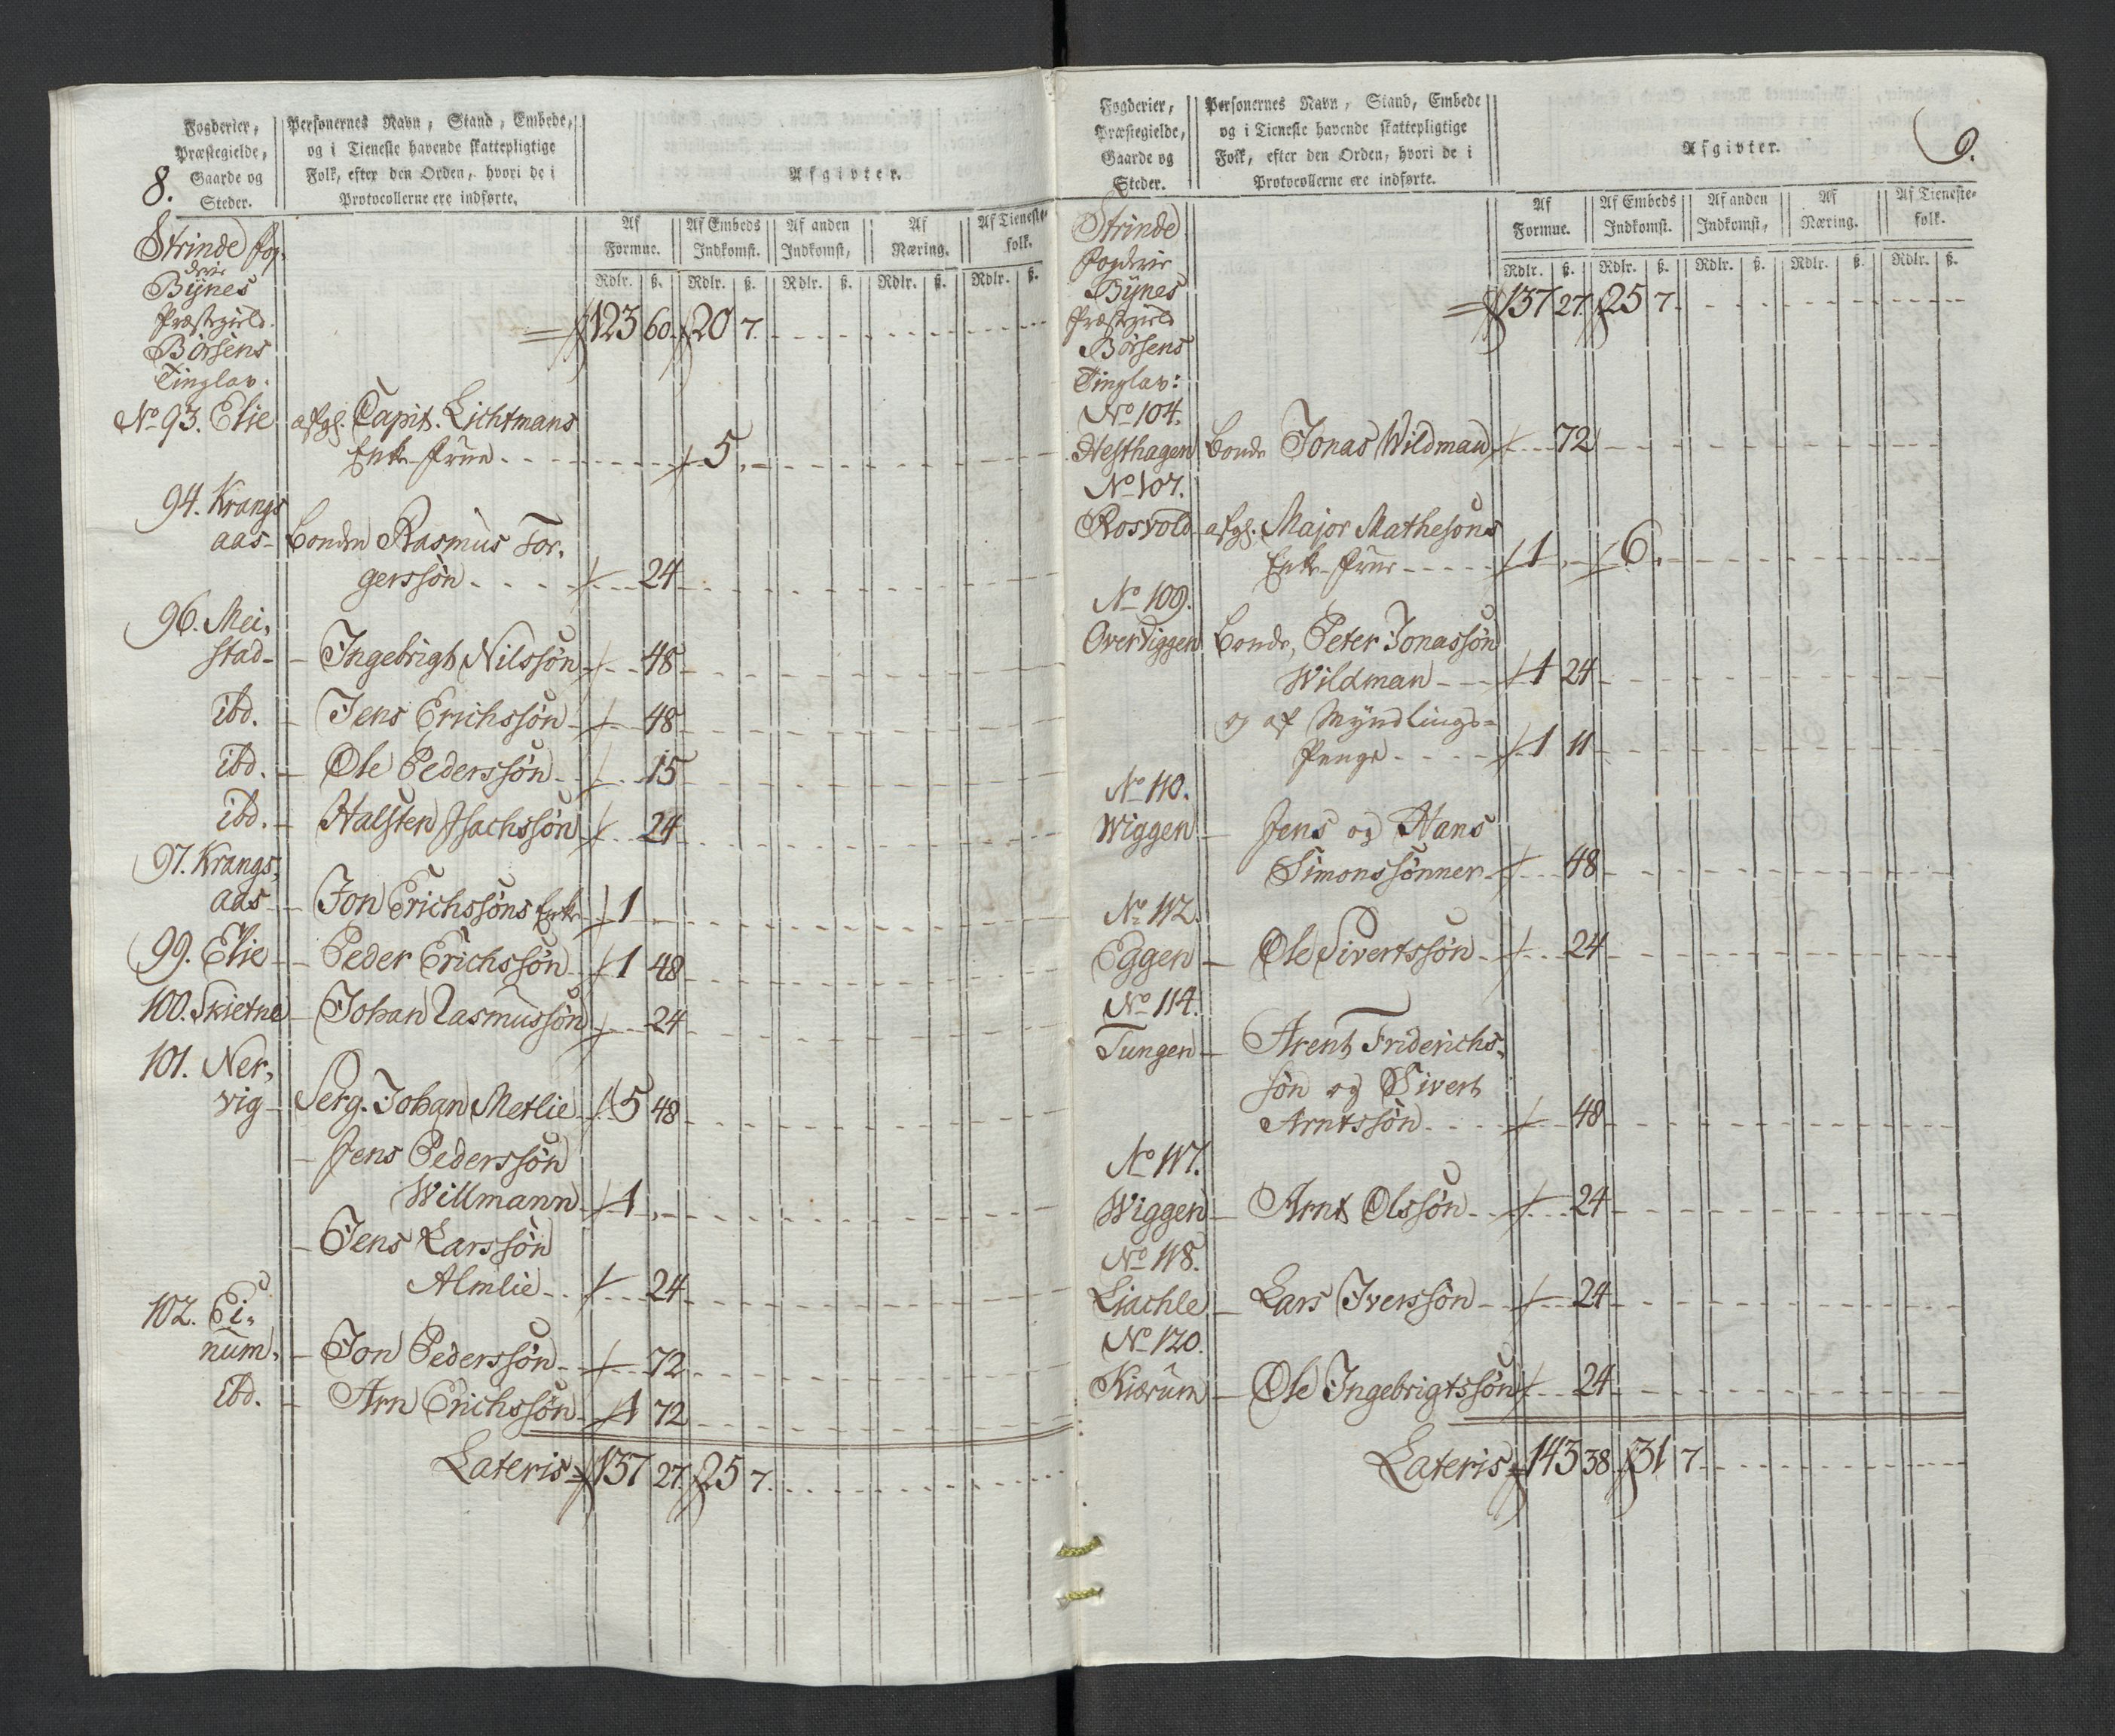 8.
Fogderier, Præstegielde, Gaarde og Steder.
Personernes Navn, Stand, Embede, og i Tieneste havende skattepligtige Folk, efter den Orden, hvori de i Protocollerne ere indførte.
Afgivter.
Af Formue. Af Embeds Indkomst. Af anden Indkomst, Af Næring. Af Tieneste folk.
Rdlr. ß. Rdlr. ß. Rdlr. ß. Rdlr. ß. Rdlr. ß.
Strinde fog-
derie
Bÿnes
Præstegield.
Børsens
Tinglav.
123 60. 20 7.
No 93. Elie afg. Capit. Lichtmans
Enke-Frue 5.
94. Krangs
aas- Bonden Rasmus Tor-
gerssøn 24
96. Mei-
stad- Ingebrigt Nilssøn 48
ibd. Jens Erichssøn 48
ibd. Ole Pederssøn 15
ibd. Halsten Isachssøn 24
97. Krangs,
aas Jon Erichssøns Enke 1
99. Elie Peder Erichssøn 1 48
100. Skietne Johan Rasmussøn 24
101. Ner,
vig Serg. Johan Metlie 5 48
Jens Pederssøn
Willmann 1.
Jens Larssøn
Almlie 24
102. Ei-
num, Jon Pederssøn 72
ibd. Arn Erichssøn 1 72
Lateris 137 27. 25 7.
9.
Fogderier, Præstegielde, Gaarde og Steder.
Personernes Navn, Stand, Embede og i Tieneste havende skattepligtige Folk, efter den Orden, hvori de i Protocollerne ere indførte.
Afgivter.
Af Formue. Af Embeds Indkomst. Af anden Indkomst, Af Næring. Af Tieneste- folk.
Rdlr. ß. Rdlr. ß. Rdlr. ß. Rdlr. ß. Rdlr. ß.
Strinde
Fogderie
Bÿnes
Præstegield
Børsens
Tinglav:
137 27. 25 7.
No 104.
Hesthagen Bonde Jonas Wildman 72
No 107.
Rosvold afg. Major Mathesons
Enke-Frue 1. 6.
No 109.
Over Viggen Bonde, Peter Jonassøn
Wildman 1 24
og af Mÿndlings-
Penge 1 11
No 110.
Wiggen Jens og Hans
Simonssønner 48
No 112.
Eggen Ole Sivertssøn 24
No 114.
Tungen Arent Friderichs-
søn og Sivert
Arntssøn 48
No 117.
Wiggen Arnt Olssøn 24
No 118.
Liachle Lars Iverssøn 24
No 120.
Kiærum Ole Ingebrigtssøn 24
Lateris 143 38. 31 7.